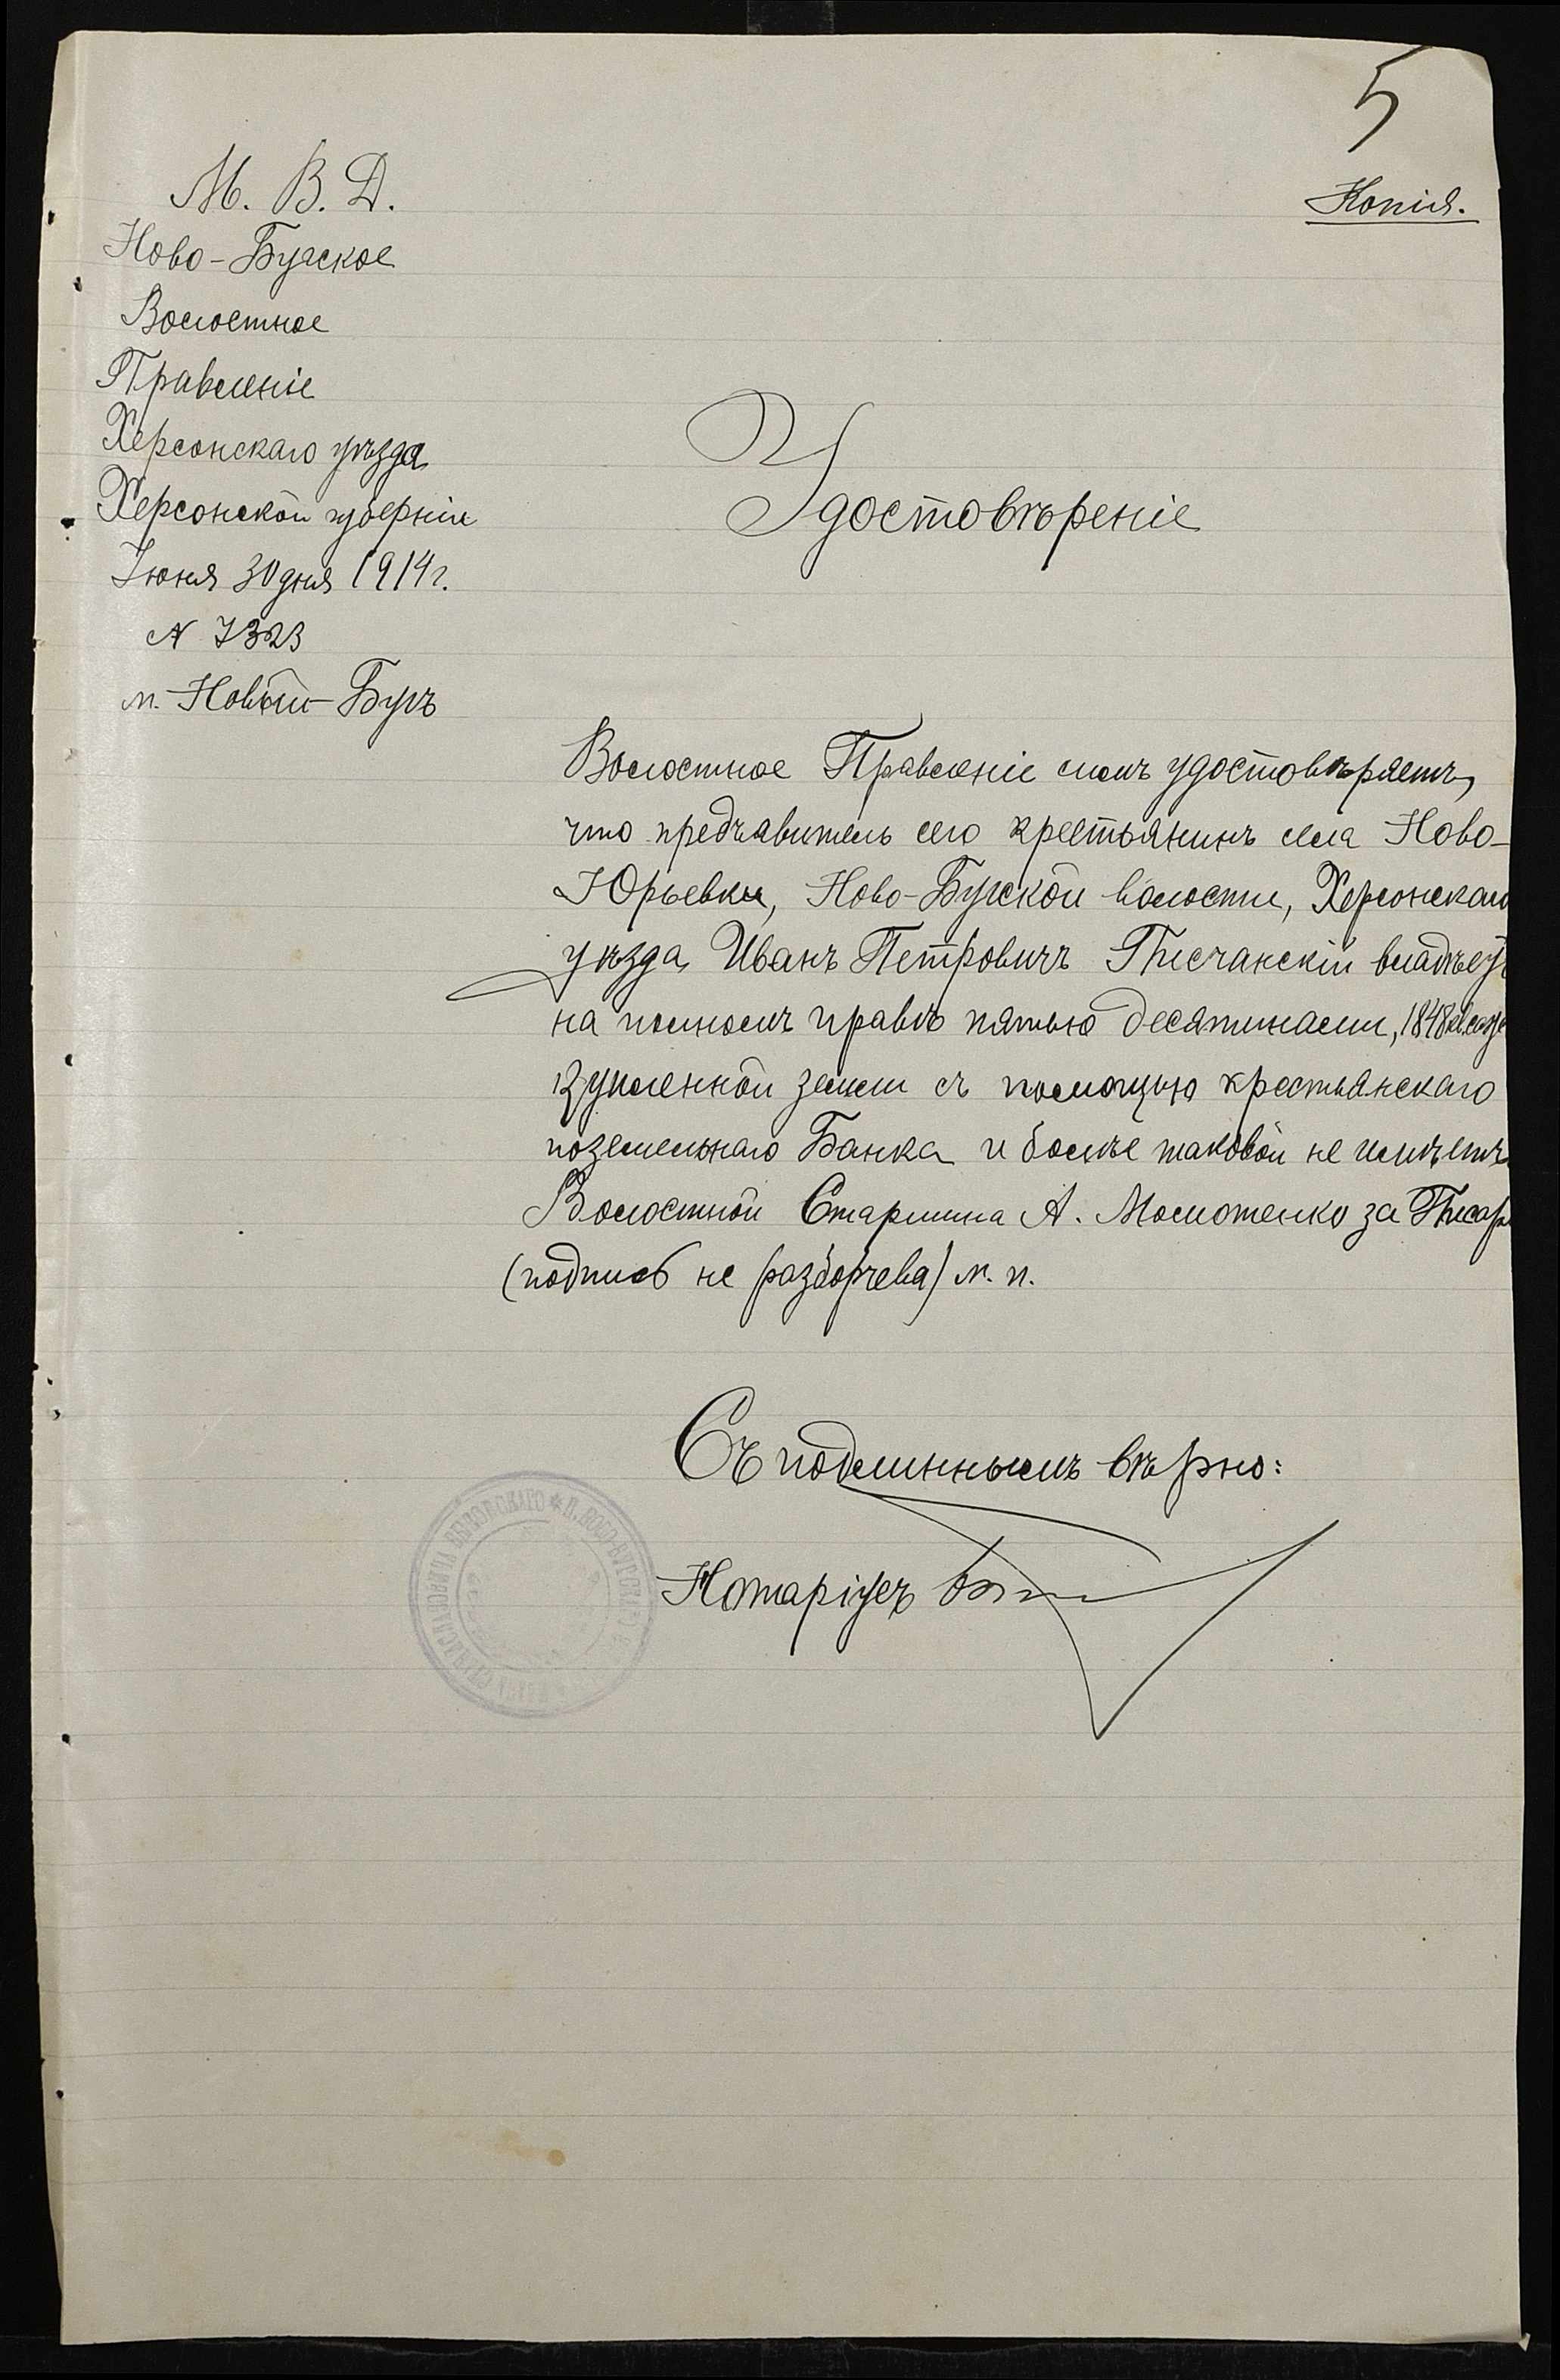 5
Копія.
М. В. Д.
Ново-Бугское
Волостное
Правленіе
Херсонскаго уѣзда
Херсонской губерніи
Іюня 30 дня 1914 г.
№ 7323
м. Новый-Бугъ
Удостовѣреніе
Волостное Правленіе симъ удостовѣряетъ,
что предъявитель сего крестьянинъ села Ново-
Юрьевки, Ново-Бугской волости, Херсонскаго
уѣзда, Иванъ Петровичъ Писчанскій владѣет
на полномъ правѣ пятью десятинами, 1848 кв. саж
купленной земли съ помощью крестьянскаго
поземельнаго Банка и болѣе таковой не имѣетъ
Волостной Старшина А. Молотенко за Писар
(подпись не разборчева) м. п.
Съ подлиннымъ вѣрно:
Нотаріусъ